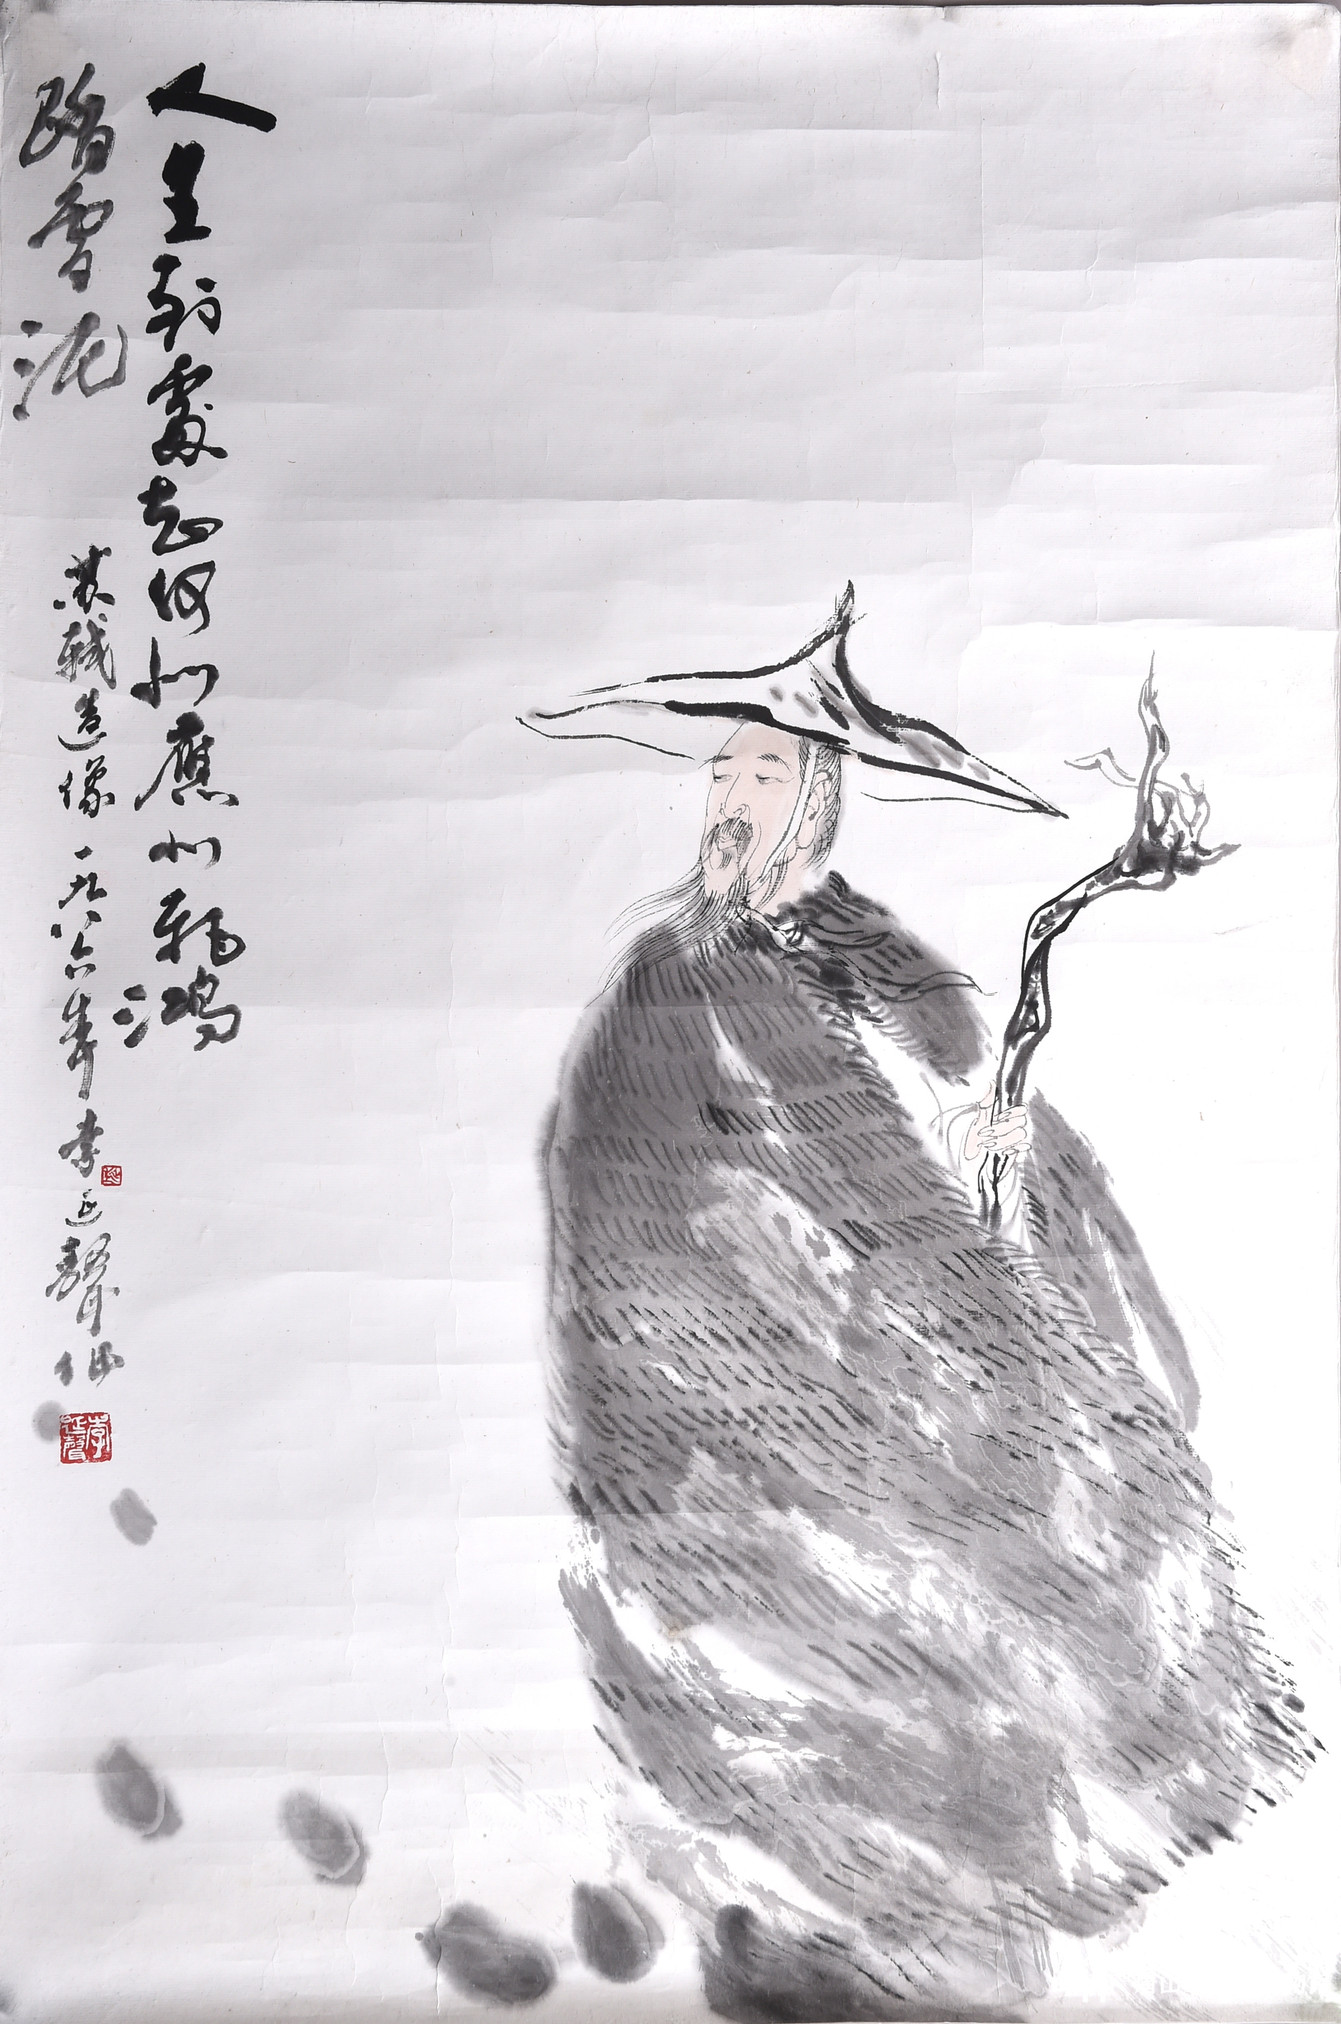 人生到處知何似應似飛鴻
踏雪泥
蘇軾造像一九八六年李延聲作
李延聲